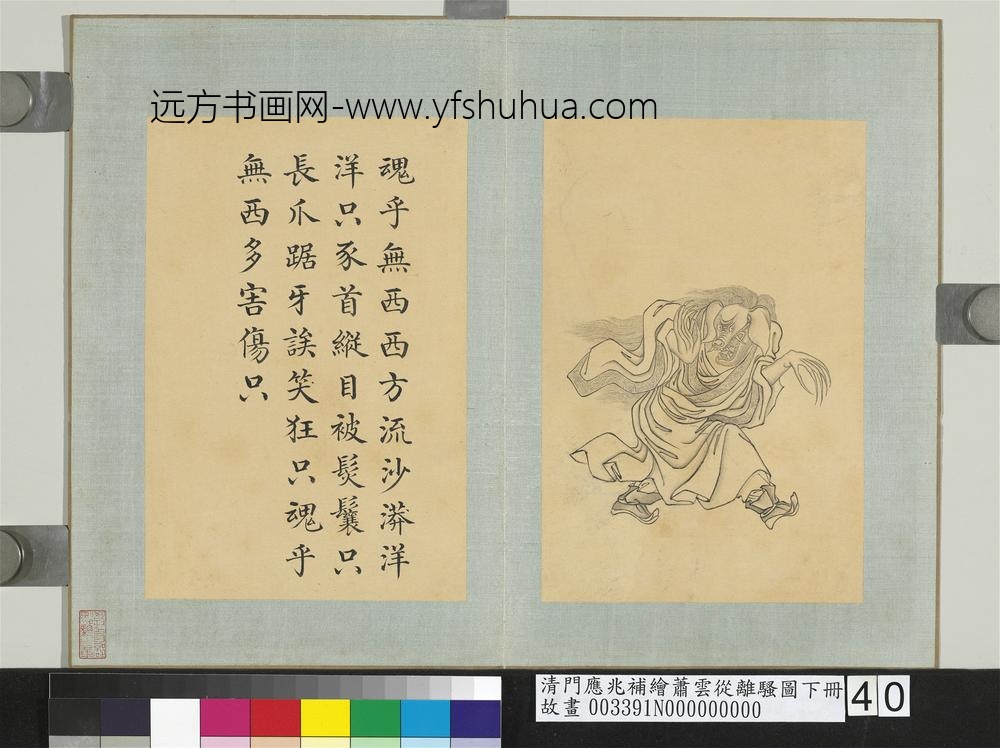 远方书画网-www.yfshuhua.com
魂乎無西西方流沙漭洋
洋只豕首縱目被髮鬟只
長爪踞牙誒笑狂只魂乎
無西多害傷只
清門應兆補繪蕭雲從離騷圖下冊
故畫 003391N000000000
40